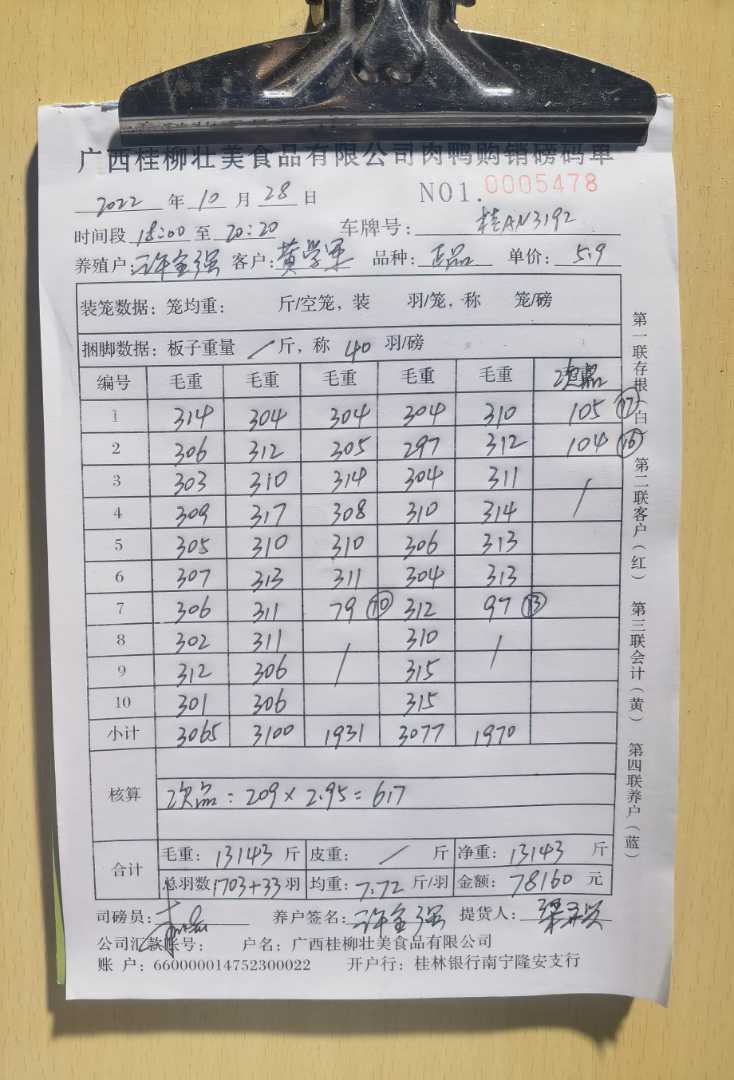 广西桂柳壮美食品有限公司肉鸭购销磅码单
2022 年 10 月 28 日 NO1. 0005478
时间段 18:00 至 20:20 车牌号: 桂AN3192
养殖户: 许全强 客户: 黄学军 品种: 正品 单价: 5.9
装笼数据: 笼均重: 斤/空笼, 装 羽/笼, 称 笼/磅
捆脚数据: 板子重量 / 斤, 称 40 羽/磅
编号 毛重 毛重 毛重 毛重 毛重 次品
1 314 304 304 304 310 105 (17)
2 306 312 305 297 312 104 (16)
3 303 310 314 304 311 /
4 309 317 308 310 314
5 305 310 310 306 313
6 307 313 311 304 313
7 306 311 79 (10) 312 97 (13)
8 302 311 / 310 /
9 312 306 315
10 301 306 315
小计 3065 3100 1931 3077 1970
核算 次品: 209 × 2.95 = 617
合计 毛重: 13143 斤 皮重: / 斤 净重: 13143 斤
总羽数 1703+33 羽 均重: 7.72 斤/羽 金额: 78160 元
司磅员: 养户签名: 许全强 提货人:
公司汇款账号: 户名: 广西桂柳壮美食品有限公司
账 户: 660000014752300022 开户行: 桂林银行南宁隆安支行
第一联存根(白) 第二联客户(红) 第三联会计(黄) 第四联养户(蓝)